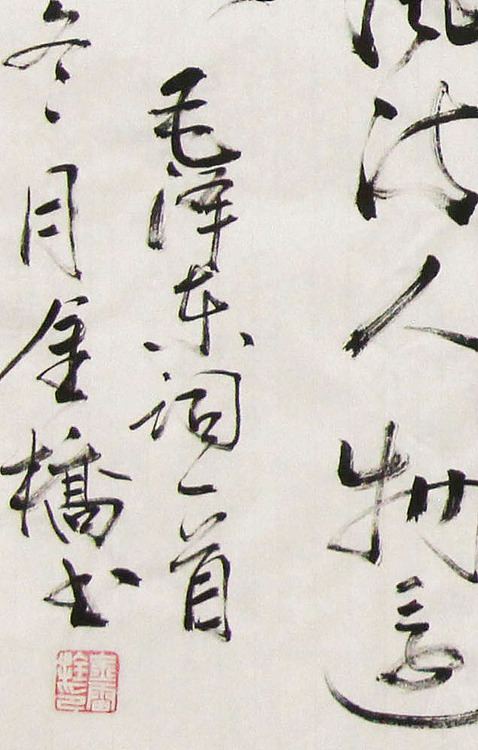 風流人物還
毛泽东词一首
冬月金橋书